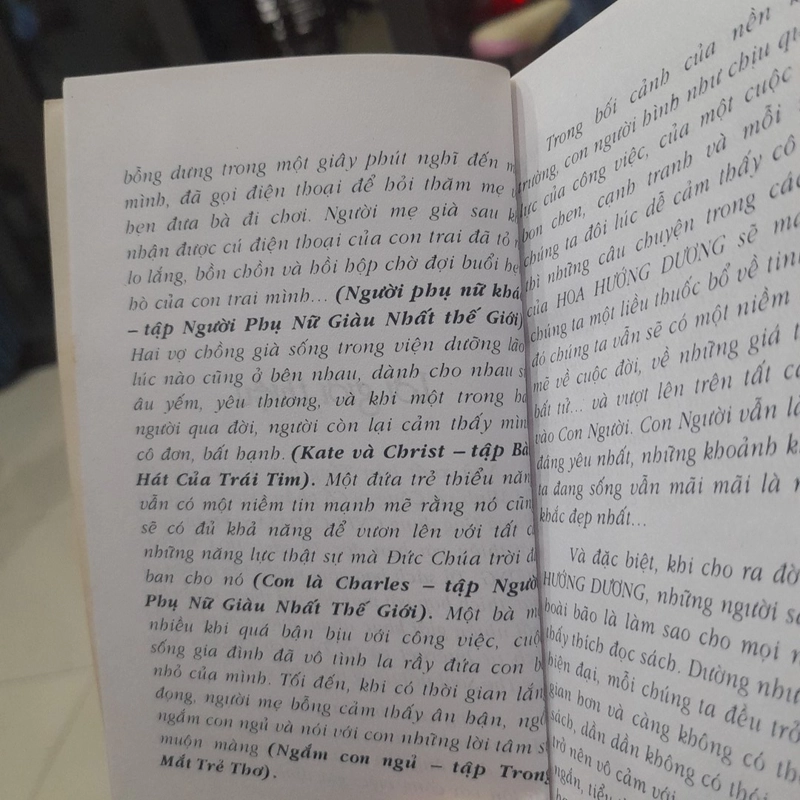 bỗng dưng trong một giây phút nghĩ đến
mình, đã gọi điện thoại để hỏi thăm mẹ
hẹn đưa bà đi chơi. Người mẹ già sau
nhận được cú điện thoại của con trai đã tỏ
lo lắng, bồn chồn và hồi hộp chờ đợi buổi
hò của con trai mình... (Người phụ nữ
– tập Người Phụ Nữ Giàu Nhất thế Giới)
Hai vợ chồng già sống trong viện dưỡng lão
lúc nào cũng ở bên nhau, dành cho nhau
âu yếm, yêu thương, và khi một trong
người qua đời, người còn lại cảm thấy
cô đơn, bất hạnh. (Kate và Christ – tập
Hát Của Trái Tim). Một đứa trẻ thiểu
vẫn có một niềm tin mạnh mẽ rằng nó
sẽ có đủ khả năng để vươn lên với tất
những năng lực thật sự mà Đức Chúa trời
ban cho nó (Con là Charles – tập
Phụ Nữ Giàu Nhất Thế Giới). Một bà
nhiều khi quá bận bịu với công việc,
sống gia đình đã vô tình la rầy đứa con
nhỏ của mình. Tối đến, khi có thời gian
đọng, người mẹ bỗng cảm thấy ân hận,
ngắm con ngủ và nói với con những lời tâm
muộn màng (Ngắm con ngủ – tập Trong
Mắt Trẻ Thơ).
Trong bối cảnh của nền
trường, con người bình như chịu
lực của công việc, của một cuộc
bon chen, cạnh tranh và mỗi
chúng ta đôi lúc dễ cảm thấy cô
thì những câu chuyện trong các
của HOA HƯỚNG DƯƠNG sẽ
chúng ta một liều thuốc bổ về tinh
đó chúng ta vẫn sẽ có một niềm
mẽ về cuộc đời, về những giá
bất tử... và vượt lên trên tất
vào Con Người. Con Người vẫn
đáng yêu nhất, những khoảnh
ta đang sống vẫn mãi mãi là
khắc đẹp nhất...
Và đặc biệt, khi cho ra
HƯỚNG DƯƠNG, những người
hoài bão là làm sao cho mọi
thấy thích đọc sách. Dường như
hiện đại, mỗi chúng ta đều trở
gian hơn và càng không có
sách, dần dần không có
trở nên vô cảm với
ngắn,